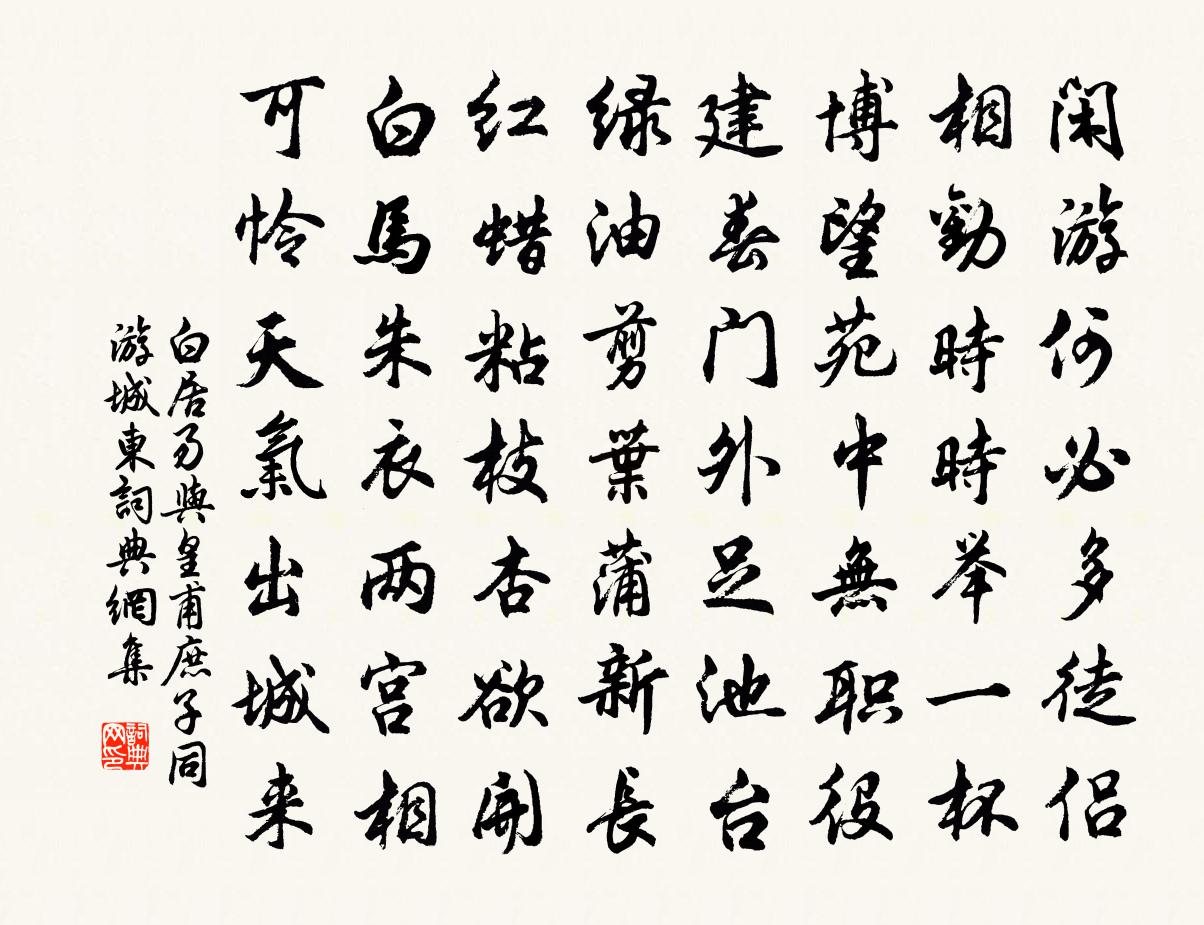 闲游何必多徒侣
相勸時時举一杯
博望苑中無职役
建春门外足池台
绿油剪葉蒲新長
红蜡粘枝杏欲開
白馬朱衣两宫相
可怜天氣出城来
白居易與皇甫庶子同
游城東詞典網集
詞典
网印